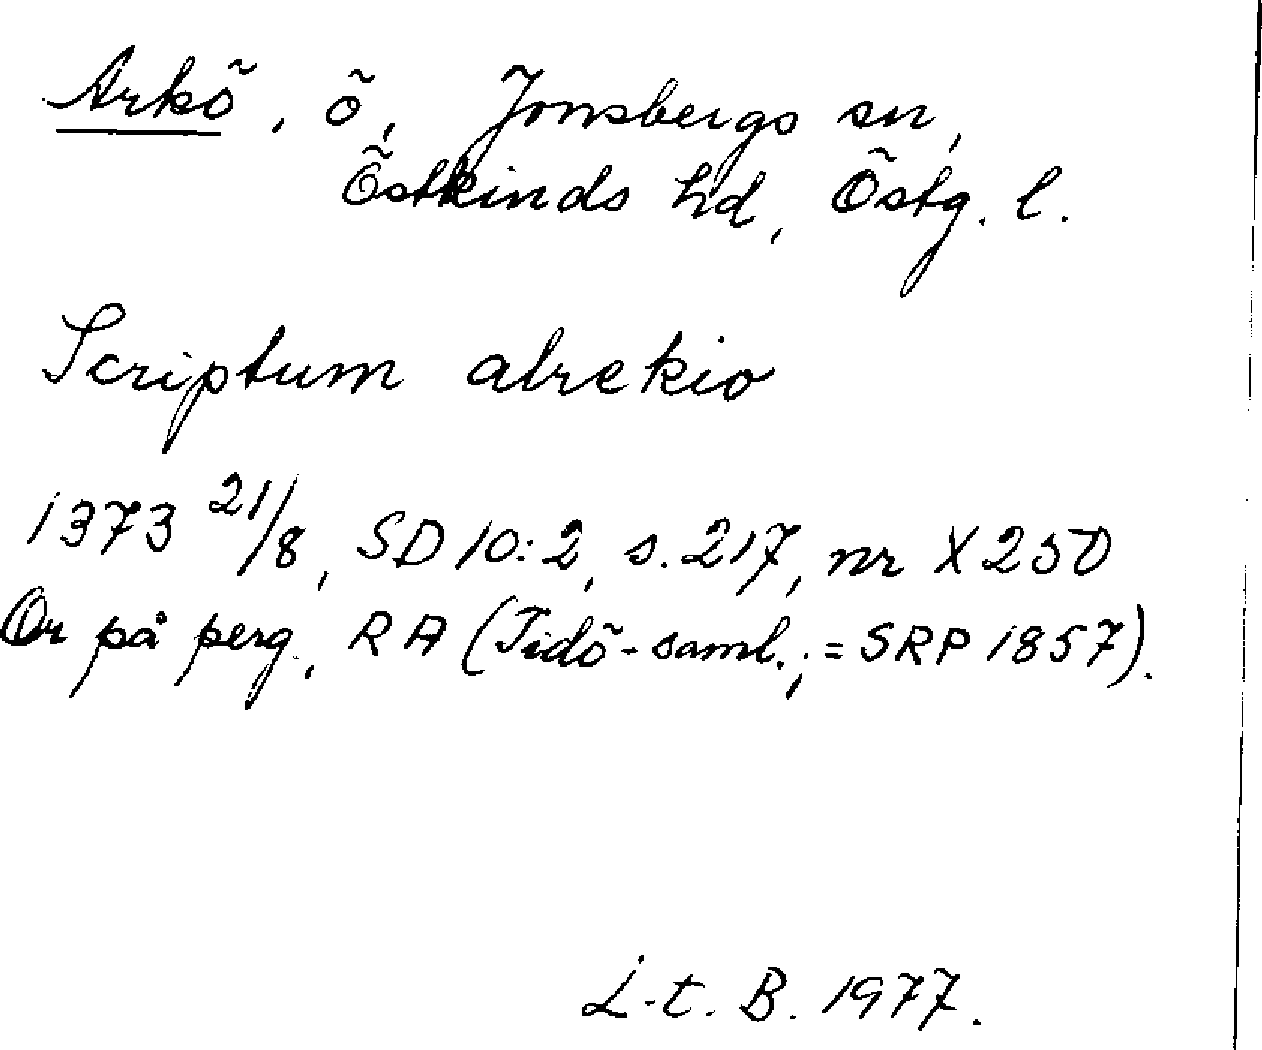 Arkö, ö, Jonsbergs sn,
Östkinds hd, Östg. l.
Scriptum alrekio
1373 21/8, SD 10:2, s. 217, nr X250
Or på perg., RA (Tidö-saml.; = SRP 1857).
L-t. B. 1977.